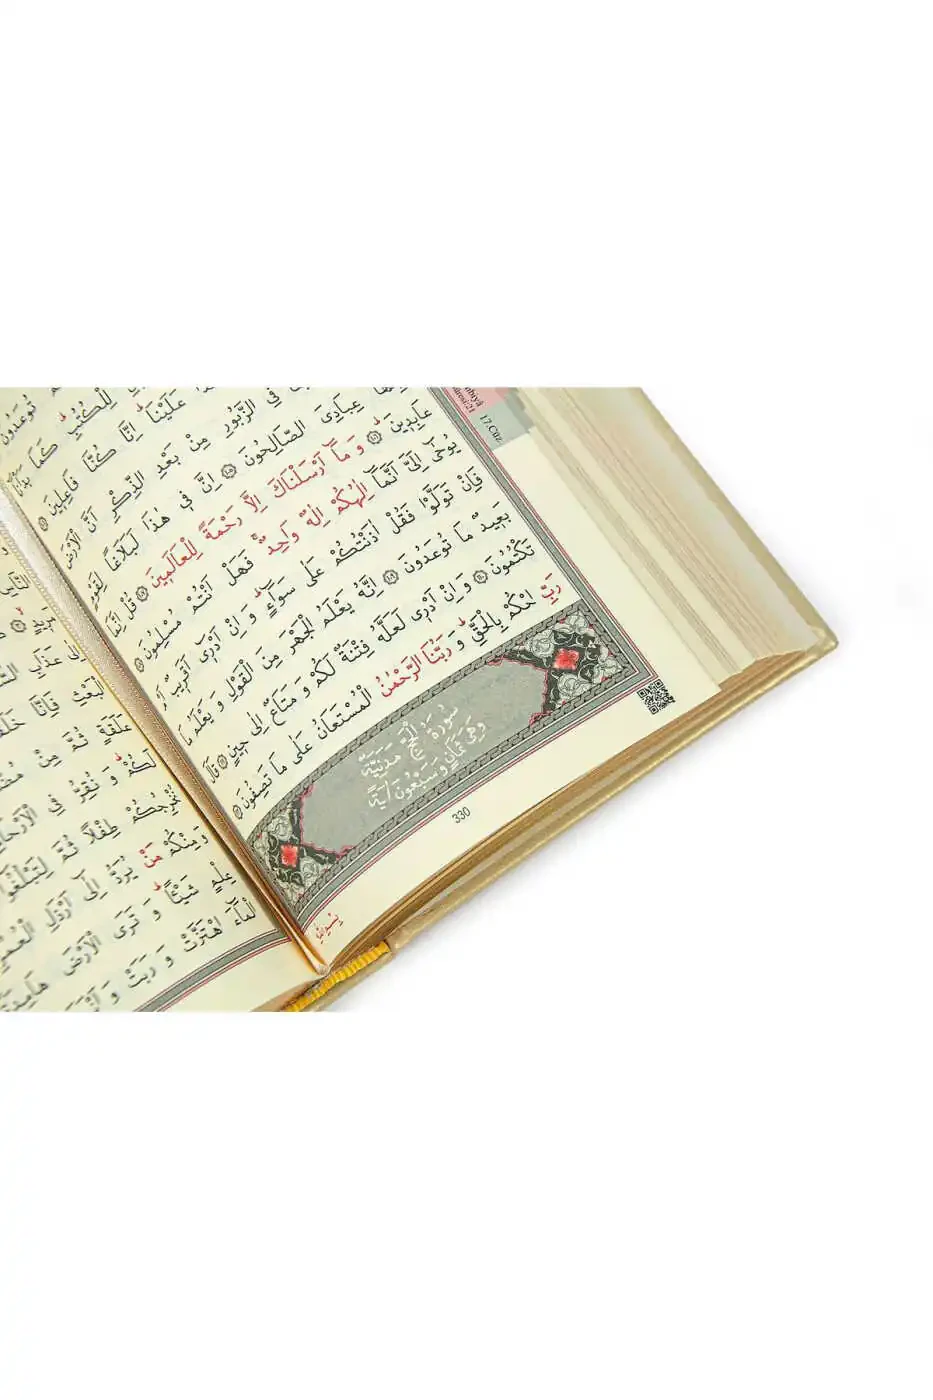 17.Cüz
تُوعَدُونَ
لِلْكُتُبِ كَمَا
عَلَيْنَا اِنَّا كُنَّا فَاعِلِينَ
فِي الزَّبُورِ مِنْ بَعْدِ الذِّكْرِ اَنَّ الْاَرْضَ
عِبَادِيَ الصَّالِحُونَ ﴿١٠٥﴾ اِنَّ فِي هٰذَا لَبَلَاغًا لِقَوْمٍ
عَابِدِينَ ﴿١٠٦﴾ وَمَٓا اَرْسَلْنَاكَ اِلَّا رَحْمَةً لِلْعَالَمِينَ ﴿١٠٧﴾ قُلْ اِنَّمَا
يُوحٰٓى اِلَيَّ اَنَّمَٓا اِلٰهُكُمْ اِلٰهٌ وَاحِدٌۚ فَهَلْ اَنْتُمْ مُسْلِمُونَ ﴿١٠٨﴾
فَاِنْ تَوَلَّوْا فَقُلْ اٰذَنْتُكُمْ عَلٰى سَوَٓاءٍۜ وَاِنْ اَدْرِٓي اَقَرِيبٌ اَمْ
بَعِيدٌ مَا تُوعَدُونَ ﴿١٠٩﴾ اِنَّهُ يَعْلَمُ الْجَهْرَ مِنَ الْقَوْلِ وَيَعْلَمُ مَا
تَكْتُمُونَ ﴿١١٠﴾ وَاِنْ اَدْرِي لَعَلَّهُ فِتْنَةٌ لَكُمْ وَمَتَاعٌ اِلٰى حِينٍ ﴿١١١﴾ قَالَ
رَبِّ احْكُمْ بِالْحَقِّۜ وَرَبُّنَا الرَّحْمٰنُ الْمُسْتَعَانُ عَلٰى مَا تَصِفُونَ ﴿١١٢﴾
سُورَةُ الْحَجِّ مَدَنِيَّةٌ
وَهِيَ ثَمَانٍ وَسَبْعُونَ اٰيَةً
330
الْبَعْثِ فَاِنَّا
عَلَقَةٍ ثُمَّ مِنْ
لَكُمْۜ وَنُقِرُّ فِي
نُخْرِجُكُمْ طِفْلًا ثُمَّ
وَمِنْكُمْ مَنْ يُرَدُّ اِلٰٓى اَرْذَلِ الْعُمُرِ
عِلْمٍ شَيْـًٔاۜ وَتَرَى الْاَرْضَ هَامِدَةً
الْمَٓاءَ اهْتَزَّتْ وَرَبَتْ